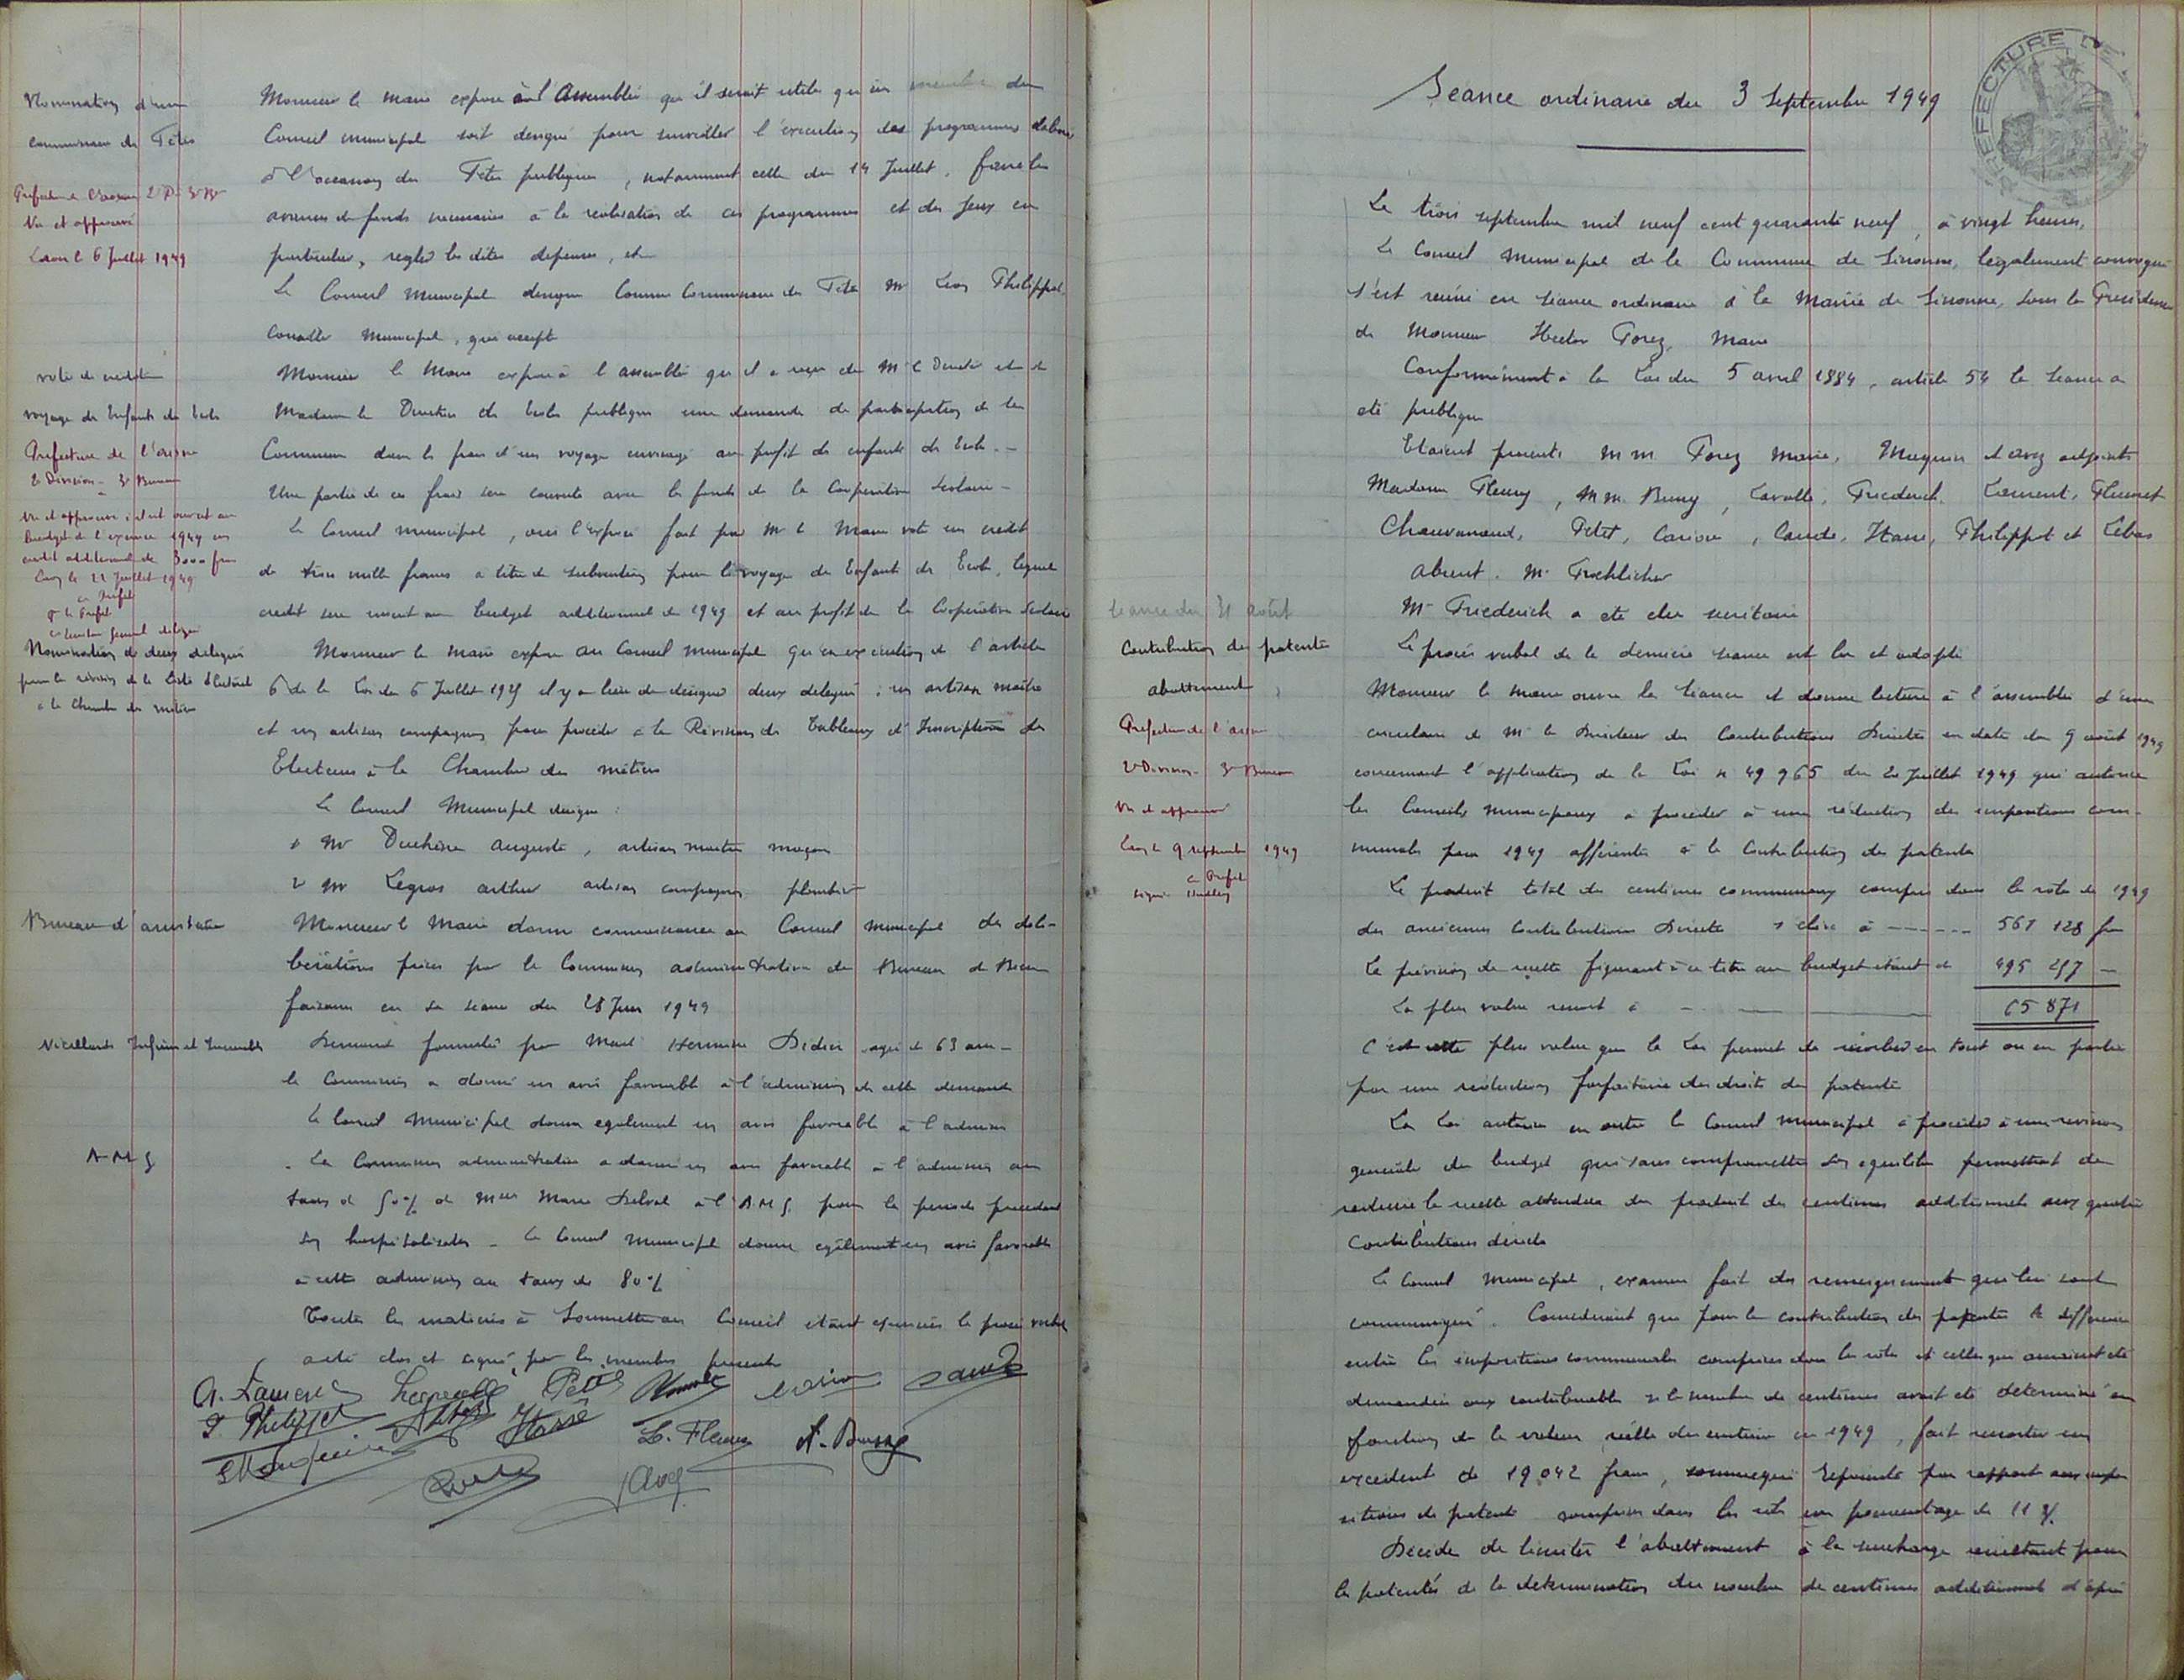 Nomination d'un
commissaire des Fêtes
Prefecture de l'Aisne 2e D 3e Bu
Vu et approuvé
Laon le 6 Juillet 1949
Monsieur le maire expose à l'Assemblée qu'il serait utile qu'un membre du
Conseil municipal soit designé pour surveiller l'execution des programmes élaborés
à l'occasion des Fêtes publiques, notamment celle du 14 Juillet, faire les
avances de fonds necessaires à la realisation de ces programmes et des Jeux en
particulier, regler les dites depenses, etc
Le Conseil Municipal designe comme Commissaire des Fêtes Mr Léon Philippot,
Conseiller Municipal, qui accepte
vote de crédit
voyage des Enfants des Ecoles
Prefecture de l'Aisne
2e Division - 3e Bureau
Vu et approuvé : il est ouvert au
Budget de l'exercice 1949 un
crédit additionnel de 3000 francs
Laon le 22 Juillet 1949
Le Prefet
P le Prefet
Le Secrétaire General délégué
Monsieur le Maire expose à l'assemblée qu'il a reçu de Mr le Directeur et de
Madame la Directrice des Ecoles publiques une demande de participation de la
Commune dans les frais d'un voyage envisagé au profit des enfants des Ecoles. -
Une partie de ces frais sera couverte avec les fonds de la Coopérative Scolaire -
Le Conseil municipal, ouï l'exposé fait par Mr le Maire vote un crédit
de trois mille francs à titre de subvention pour le voyage des Enfants des Ecoles, lequel
credit sera inscrit au budget additionnel de 1949 et au profit de la Coopérative Scolaire
Nomination de deux délégués
pour la révision de la Liste Electorale
à la Chambre des métiers
Monsieur le Maire expose au Conseil municipal qu'en execution de l'article
6 de la Loi du 5 Juillet 1925 il y a lieu de designer deux delegués : un artisan maître
et un artisan compagnon pour proceder à la Révision des Tableaux d'Inscription des
Electeurs à la Chambre des métiers
Le Conseil Municipal designe :
1 Mr Duchêne Auguste, artisan maître maçon
2 Mr Legros Arthur artisan compagnon plombier
Bureau d'assistance
Monsieur le Maire donne connaissance au Conseil municipal des déli-
bérations prises par la Commission administrative du Bureau de Bien
faisance en sa séance du 28 Juin 1949
Vieillards Infirmes et Incurables
Demande formulée par Made Hermine Didier agée de 63 ans -
la Commission a donné un avis favorable à l'admission de cette demande
Le Conseil Municipal donne egalement un avis favorable à l'admission
A M G
La Commission administrative a donné un avis favorable à l'admission au
taux de 50 % de Mme Marie Delval à l'A.M.G. pour la periode precedant
son hospitalisation - Le Conseil Municipal donne egalement un avis favorable
à cette admission au taux de 80 %
Toutes les matières à soumettre au Conseil étant epuisées le procès verbal
a été clos et signé par les membres presents
A. Laurent Petit
P. Philippot Hasse L. Fleury A. Buny
Avez
PREFECTURE DE
Séance ordinaire du 3 Septembre 1949
Le trois septembre mil neuf cent quarante neuf, à vingt heures,
Le Conseil Municipal de la Commune de Sissonne, legalement convoqué
s'est reuni en séance ordinaire à la Mairie de Sissonne, sous la Présidence
de Monsieur Hector Porez, Maire
Conformément à la Loi du 5 avril 1884, article 54 la séance a
été publique
Etaient presents MM Porez Maire, Maquin et Avez adjoints
Madame Fleury, MM. Buny, Lavalle, Friederich, Laurent, Fleuret
Chauvanand, Petit, Carion, Caude, Hasse, Philippot et Lebas
Absent. Mr Froehlicher
Mr Friederich a été élu secrétaire
Le procès verbal de la dernière séance est lu et adopté
séance du 31 août
Contribution des patentes
abattement
Prefecture de l'Aisne
2e Division - 3e Bureau
Vu et approuvé
Laon le 9 septembre 1949
Le Prefet
signé
Monsieur le Maire ouvre la séance et donne lecture à l'assemblée d'une
circulaire de Mr le Directeur des Contributions Directes en date du 9 août 1949
concernant l'application de la Loi n 49 965 du 20 Juillet 1949 qui autorise
les Conseils Municipaux à proceder à une réduction des impositions com-
munales pour 1949 afférentes à la Contribution des patentes
Le produit total des centimes communaux compris dans les rôles de 1949
des anciennes Contributions Directes s'élève à ------ 561 128 fr
La prévision de recette figurant à ce titre au budget étant de 495 257 -
La plus value ressort à - 65 871
C'est cette plus value que la Loi permet de résorber en tout ou en partie
par une réduction forfaitaire des droits de patente
La Loi autorise en outre le Conseil Municipal à procéder à une revision
generale du budget qui sans compromettre son equilibre permettrait de
reduire la recette attendue du produit des centimes additionnels aux quatre
Contributions directes
Le Conseil Municipal, examen fait des renseignements qui lui sont
communiqués. Considerant que pour la contribution des patentes la difference
entre les impositions communales comprises dans les rôles et celles qui auraient été
demandées aux contribuables si le nombre de centimes avait été determiné en
fonction de la valeur réelle du centime en 1949, fait ressortir un
excedent de 19 042 francs, somme qui represente par rapport aux impo
sitions de patente comprises dans les rôles un pourcentage de 11 %.
Décide de limiter l'abattement à la surcharge resultant pour
les patentés de la determination du nombre de centimes additionnels d'après